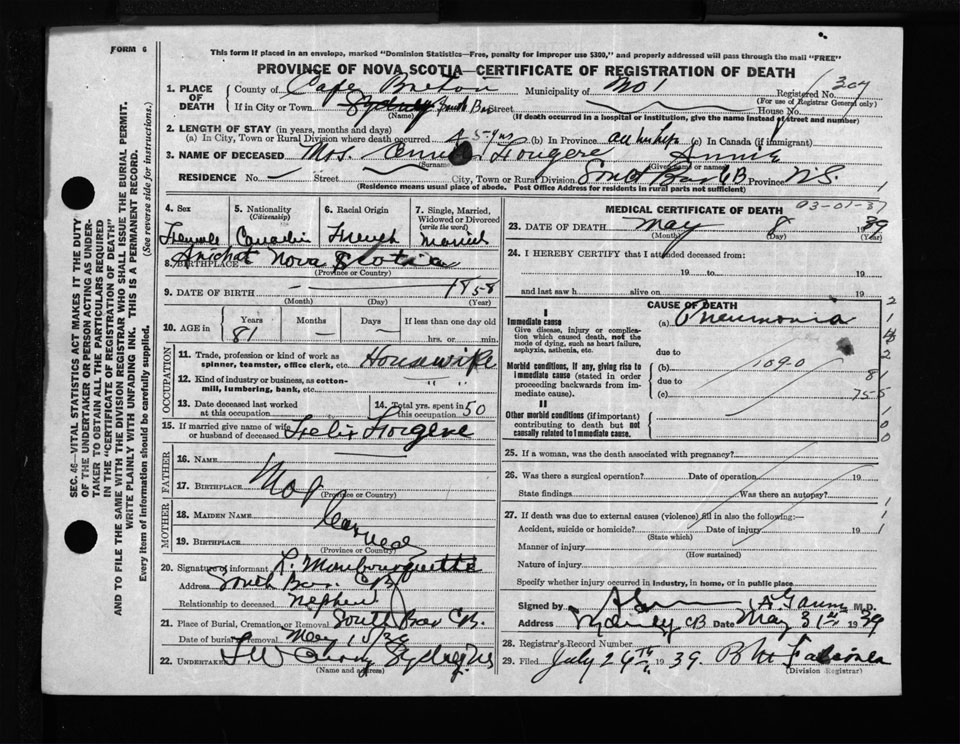 FORM 6
This form if placed in an envelope, marked "Dominion Statistics—Free, penalty for improper use $300," and properly addressed will pass through the mail "FREE"
PROVINCE OF NOVA SCOTIA—CERTIFICATE OF REGISTRATION OF DEATH
SEC. 46—VITAL STATISTICS ACT MAKES IT THE DUTY
OF THE UNDERTAKER OR PERSON ACTING AS UNDER-
TAKER TO OBTAIN ALL THE PARTICULARS REQUIRED
IN THE "CERTIFICATE OF REGISTRATION OF DEATH"
AND TO FILE THE SAME WITH THE DIVISION REGISTRAR WHO SHALL ISSUE THE BURIAL PERMIT.
WRITE PLAINLY WITH UNFADING INK. THIS IS A PERMANENT RECORD.
Every item of information should be carefully supplied.
(See reverse side for instructions.)
1. PLACE OF DEATH
County of Cape Breton Municipality of No 1 Registered No. 307
(For use of Registrar General only)
If in City or Town Sydney South Bar Street House No.
(Name) (If death occurred in a hospital or institution, give the name instead of street and number)
2. LENGTH OF STAY (in years, months and days)
(a) In City, Town or Rural Division where death occurred (b) In Province all her life (c) In Canada (if immigrant)
3. NAME OF DECEASED Mrs. Fougere Annie
(Surname) (Given name or names)
RESIDENCE No. Street City, Town or Rural Division South Bar CB Province N.S.
(Residence means usual place of abode. Post Office Address for residents in rural parts not sufficient)
4. Sex 5. Nationality (Citizenship) 6. Racial Origin 7. Single, Married, Widowed or Divorced (write the word)
Female Canadian French Married
8. BIRTHPLACE Arichat Nova Scotia
(Province or Country)
9. DATE OF BIRTH 1858
(Month) (Day) (Year)
10. AGE in Years Months Days If less than one day
81 — — hrs. or min.
OCCUPATION
11. Trade, profession or kind of work as spinner, teamster, office clerk, etc. Housewife
12. Kind of industry or business, as cotton-mill, lumbering, bank, etc. " "
13. Date deceased last worked at this occupation 14. Total yrs. spent in this occupation 50
15. If married give name of wife or husband of deceased Felix Fougere
FATHER
16. Name
17. Birthplace
(Province or Country)
MOTHER
18. Maiden Name
19. Birthplace
(Province or Country)
20. Signature of informant R. Monbourquette
Address South Bar. CB
Relationship to deceased nephew
21. Place of Burial, Cremation or Removal South Bar C.B.
Date of burial or removal May
22. Undertaker Sydney NS
(Name and address)
MEDICAL CERTIFICATE OF DEATH
03-01-37
23. DATE OF DEATH May 8 1939
(Month) (Day) (Year)
24. I HEREBY CERTIFY that I attended deceased from:
19 to 19
and last saw h alive on 19
CAUSE OF DEATH
I
Immediate cause (a) Pneumonia
Give disease, injury or complication which caused death, not the mode of dying, such as heart failure, asphyxia, asthenia, etc.
due to
Morbid conditions, if any, giving rise to immediate cause (stated in order proceeding backwards from immediate cause).
(b) 1090
due to
(c)
II
Other morbid conditions (if important) contributing to death but not causally related to immediate cause.
25. If a woman, was the death associated with pregnancy?
26. Was there a surgical operation? Date of operation 19
State findings Was there an autopsy?
27. If death was due to external causes (violence) fill in also the following:—
Accident, suicide or homicide? Date of injury 19
(State which)
Manner of injury
(How sustained)
Nature of injury
Specify whether injury occurred in industry, in home, or in public place
Signed by M.D.
Address Sydney CB Date May 31st 1939
28. Registrar's Record Number
29. Filed July 26th 1939.
(Division Registrar)